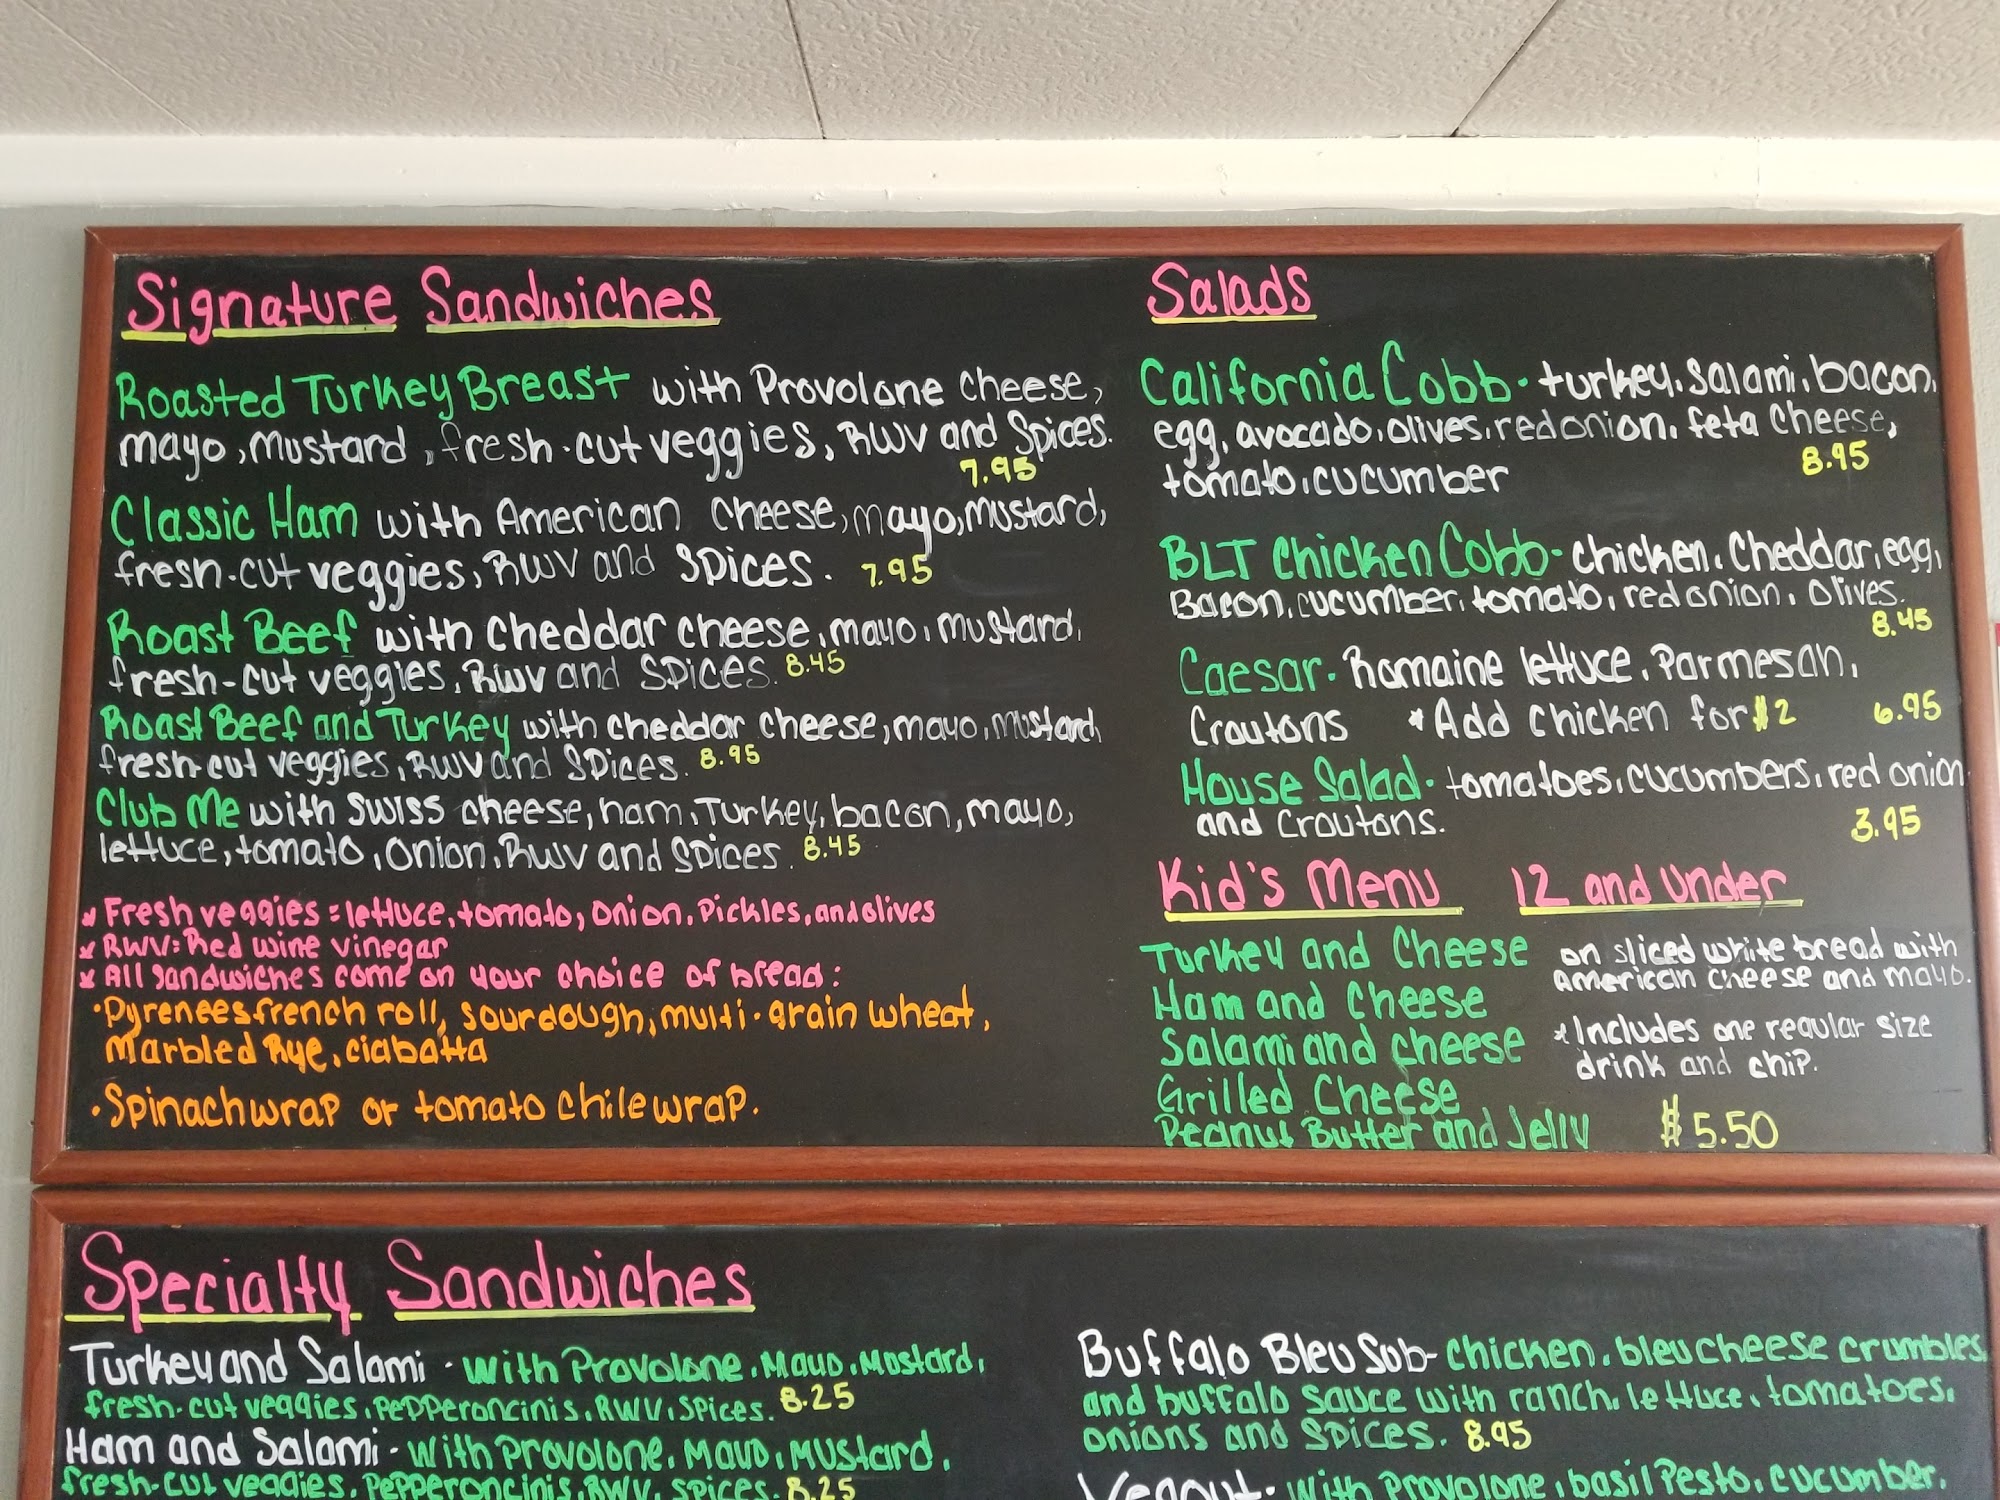 Signature Sandwiches
Roasted Turkey Breast with Provolone Cheese,
mayo, mustard, fresh-cut veggies, RWV and Spices.
7.95
Classic Ham with American Cheese, mayo, mustard,
fresh-cut veggies, RWV and Spices. 7.95
Roast Beef with Cheddar cheese, mayo, mustard,
fresh-cut veggies, RWV and Spices. 8.45
Roast Beef and Turkey with cheddar cheese, mayo, mustard,
fresh-cut veggies, RWV and Spices. 8.95
Club Me with Swiss cheese, ham, Turkey, bacon, mayo,
lettuce, tomato, onion, RWV and Spices. 8.45
* Fresh veggies = lettuce, tomato, onion, Pickles, and olives
* RWV = Red wine vinegar
* All sandwiches come on your choice of bread:
• Pyrenees french roll, sourdough, multi-grain wheat,
Marbled Rye, ciabatta
• Spinach wrap or tomato chile wrap.
Salads
California Cobb - turkey, salami, bacon,
egg, avocado, olives, red onion, feta cheese,
tomato, cucumber 8.95
BLT Chicken Cobb - chicken, Cheddar, egg,
Bacon, cucumber, tomato, red onion, olives.
8.45
Caesar - Romaine lettuce, Parmesan,
Croutons * Add Chicken for $2 6.95
House Salad - tomatoes, cucumbers, red onion
and Croutons. 3.95
Kid's Menu 12 and Under
Turkey and Cheese
Ham and Cheese
Salami and cheese
Grilled Cheese
Peanut Butter and Jelly
on sliced white bread with
American cheese and mayo.
* Includes one regular size
drink and chip.
$5.50
Specialty Sandwiches
Turkey and Salami - with Provolone, Mayo, Mustard,
fresh-cut veggies, Pepperoncinis, RWV, Spices. 8.25
Ham and Salami - with Provolone, Mayo, Mustard,
fresh-cut veggies, Pepperoncinis, RWV, Spices. 8.25
Buffalo Bleu Sub - chicken, bleu cheese crumbles
and buffalo sauce with ranch, lettuce, tomatoes,
onions and Spices. 8.95
with Provolone, basil Pesto, cucumber,